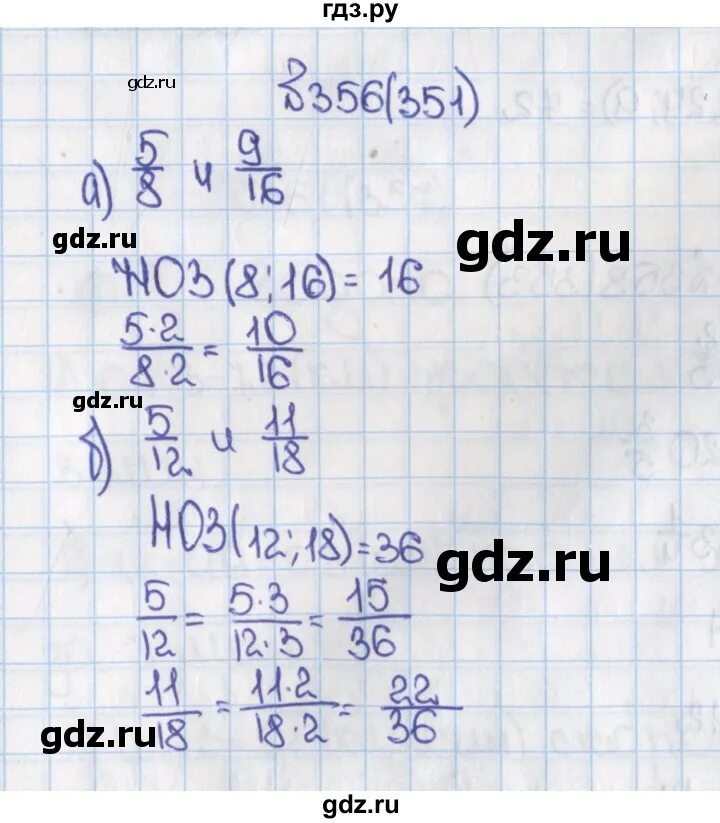 гдз.ру
gdz.ru
№356(351)
а) 5/8 и 9/16
gdz.ru
gdz.ru
НОЗ(8;16)=16
5·2/8·2=10/16
gdz.ru
б) 5/12 и 11/18
НОЗ(12;18)=36
gdz.ru
5/12=5·3/12·3=15/36
11/18=11·2/18·2=22/36
gdz.ru
gdz.ru